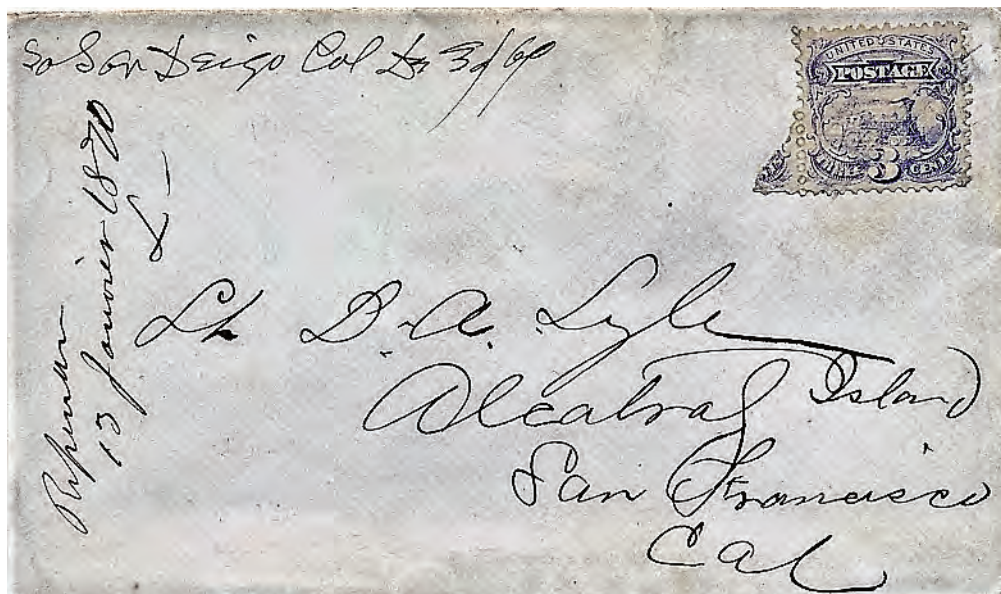 So San Deigo Cal De 3d/69
UNITED STATES
POSTAGE
THREE 3 CENTS
13 Janvier 1870
L-
Lt D. A. Lyle
Alcatraz Island
San Francisco
Cal